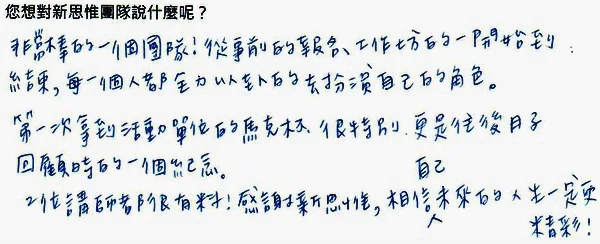 您想對新思惟團隊說什麼呢？
非常棒的一個團隊！從事前的報告、工作坊的一開始到
結束，每一個人都全力以赴的去扮演自己的角色。
第一次拿到活動單位的馬克杯很特別，更是往後日子
回顧時的一個紀念。
2位講師都很有料！感謝新思惟，相信自己未來的人生一定更
精彩！